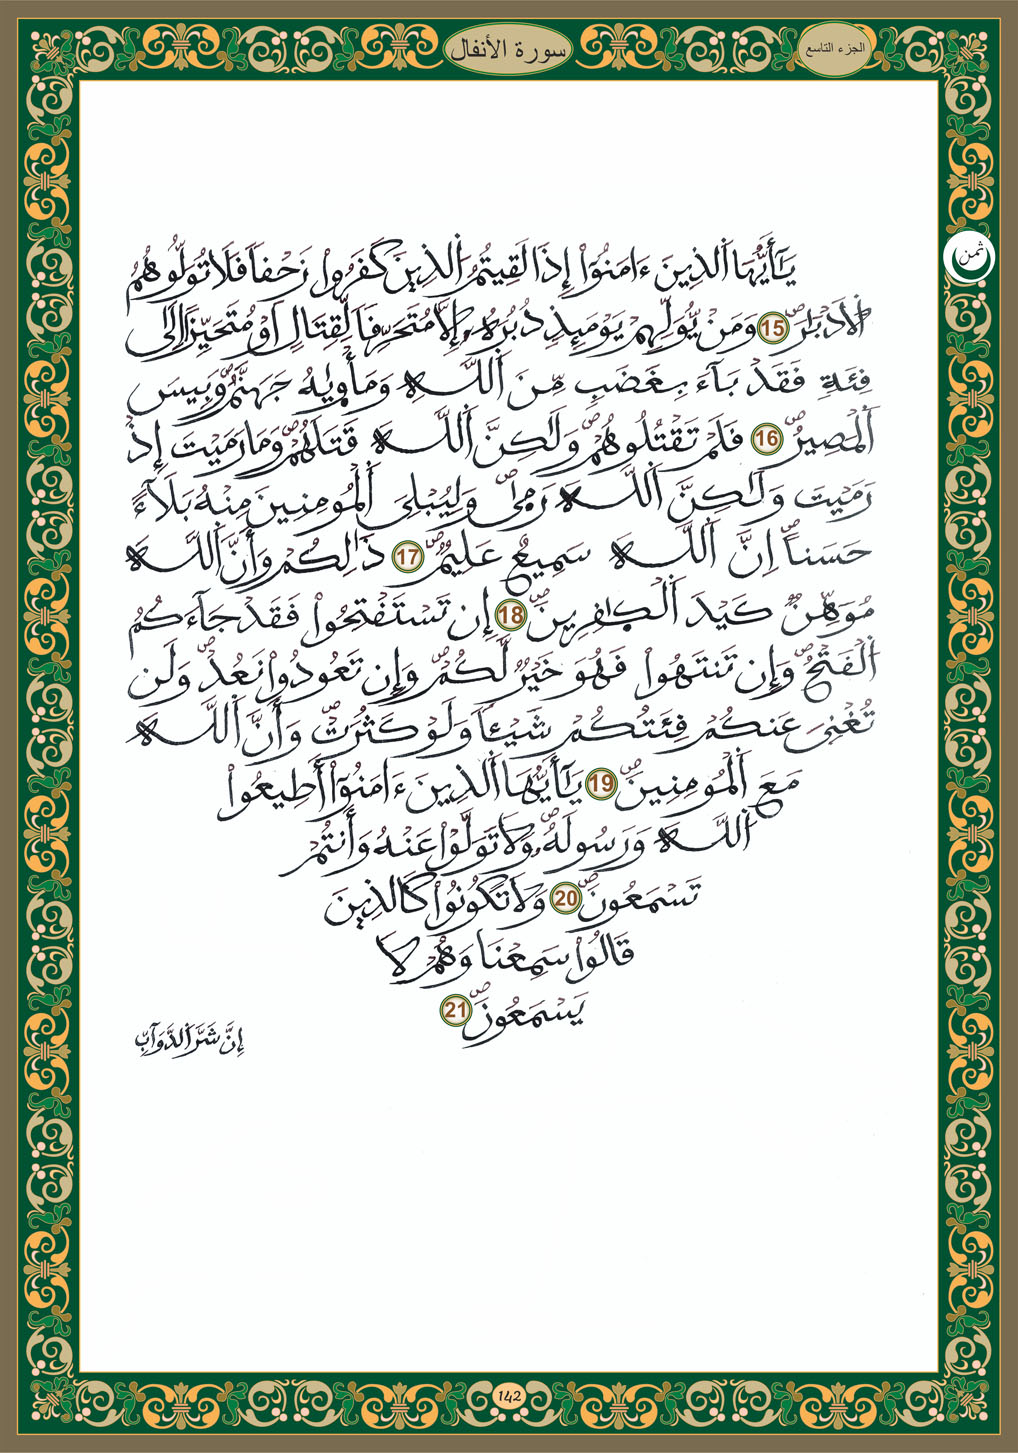 سورة الأنفال
الجزء التاسع
ثمن
يَٰٓأَيُّهَا اَ۬لذِينَ ءَامَنُوٓاْ إِذَا لَقِيتُمُ اُ۬لذِينَ كَفَرُواْ زَحْفاٗ فَلَا تُوَلُّوهُمُ
اُ۬لَادْبَٰرَۖ 15 وَمَنْ يُّوَلِّهِمْ يَوْمَئِذٖ دُبُرَهُۥٓ إِلَّا مُتَحَرِّفاٗ لِّقِتَالٍ اَوْ مُتَحَيِّزاً اِلَىٰ
فِئَةٖ فَقَدْ بَآءَ بِغَضَبٖ مِّنَ اَ۬للَّهِ وَمَأْوِيٰهُ جَهَنَّمُۖ وَبِيسَ
اَ۬لْمَصِيرُۖ 16 فَلَمْ تَقْتُلُوهُمْۖ وَلَٰكِنَّ اَ۬للَّهَ قَتَلَهُمْۖ وَمَا رَمَيْتَ إِذْ
رَمَيْتَ وَلَٰكِنَّ اَ۬للَّهَ رَمَىٰۖ وَلِيُبْلِيَ اَ۬لْمُومِنِينَ مِنْهُ بَلَآءً
حَسَناًۖ اِنَّ اَ۬للَّهَ سَمِيعٌ عَلِيمٞۖ 17 ذَٰلِكُمْ وَأَنَّ اَ۬للَّهَ
مُوَهِّنٞ كَيْدَ اَ۬لْكٰ۪فِرِينَۖ 18 إِن تَسْتَفْتِحُواْ فَقَدْ جَآءَكُمُ
اُ۬لْفَتْحُۖ وَإِن تَنتَهُواْ فَهُوَ خَيْرٞ لَّكُمْۖ وَإِن تَعُودُواْ نَعُدْۖ وَلَن
تُغْنِيَ عَنكُمْ فِئَتُكُمْ شَيْـٔاٗ وَلَوْ كَثُرَتْۖ وَأَنَّ اَ۬للَّهَ
مَعَ اَ۬لْمُومِنِينَۖ 19 يَٰٓأَيُّهَا اَ۬لذِينَ ءَامَنُوٓاْ أَطِيعُواْ
اُ۬للَّهَ وَرَسُولَهُۥۖ وَلَا تَوَلَّوْاْ عَنْهُ وَأَنتُمْ
تَسْمَعُونَۖ 20 وَلَا تَكُونُواْ كَالذِينَ
قَالُواْ سَمِعْنَا وَهُمْ لَا
يَسْمَعُونَۖ 21
إِنَّ شَرَّ اَ۬لدَّوَآبِّ
142